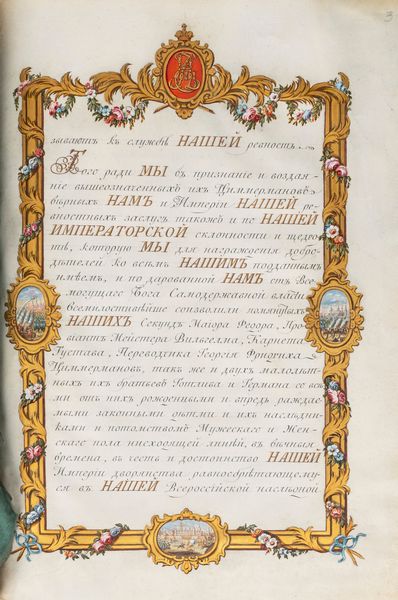 3
зываютъ къ службѣ НАШЕЙ ревность.
Того ради МЫ въ признаніе и воздая-
ніе вышеозначенныхъ ихъ Циммермановъ
вѣрныхъ НАМЪ и Имперіи НАШЕЙ ре-
вностныхъ заслугъ такожъ и по НАШЕЙ
ИМПЕРАТОРСКОЙ склонности и щедро
тѣ, которую МЫ для награжденія добро-
дѣтелей ко всѣмъ НАШИМЪ подданнымъ
имѣемъ, и по дарованной НАМЪ отъ Все-
могущаго Бога Самодержавной власти
Всемилостивѣйше соизволили помянутыхъ
НАШИХЪ Секундъ Маіора Федора, Про-
віантъ Мейстера Вильгелма, Карнета
Густава, Переводчика Георгія Фридриха
Циммермановъ, такъ же и двухъ малолѣт-
ныхъ ихъ братьевъ Готлиба и Германа со все
ми отъ нихъ рожденными и впредь раждае-
мыми законными дѣтьми и ихъ наслѣдни-
ками и потомствомъ Мужескаго и Жен-
скаго пола нисходящей линѣи, въ вѣчныя
времена, въ честь и достоинство НАШЕЙ
Имперіи дворянства равнообрѣтающему-
ся въ НАШЕЙ Всероссійской наслѣдной